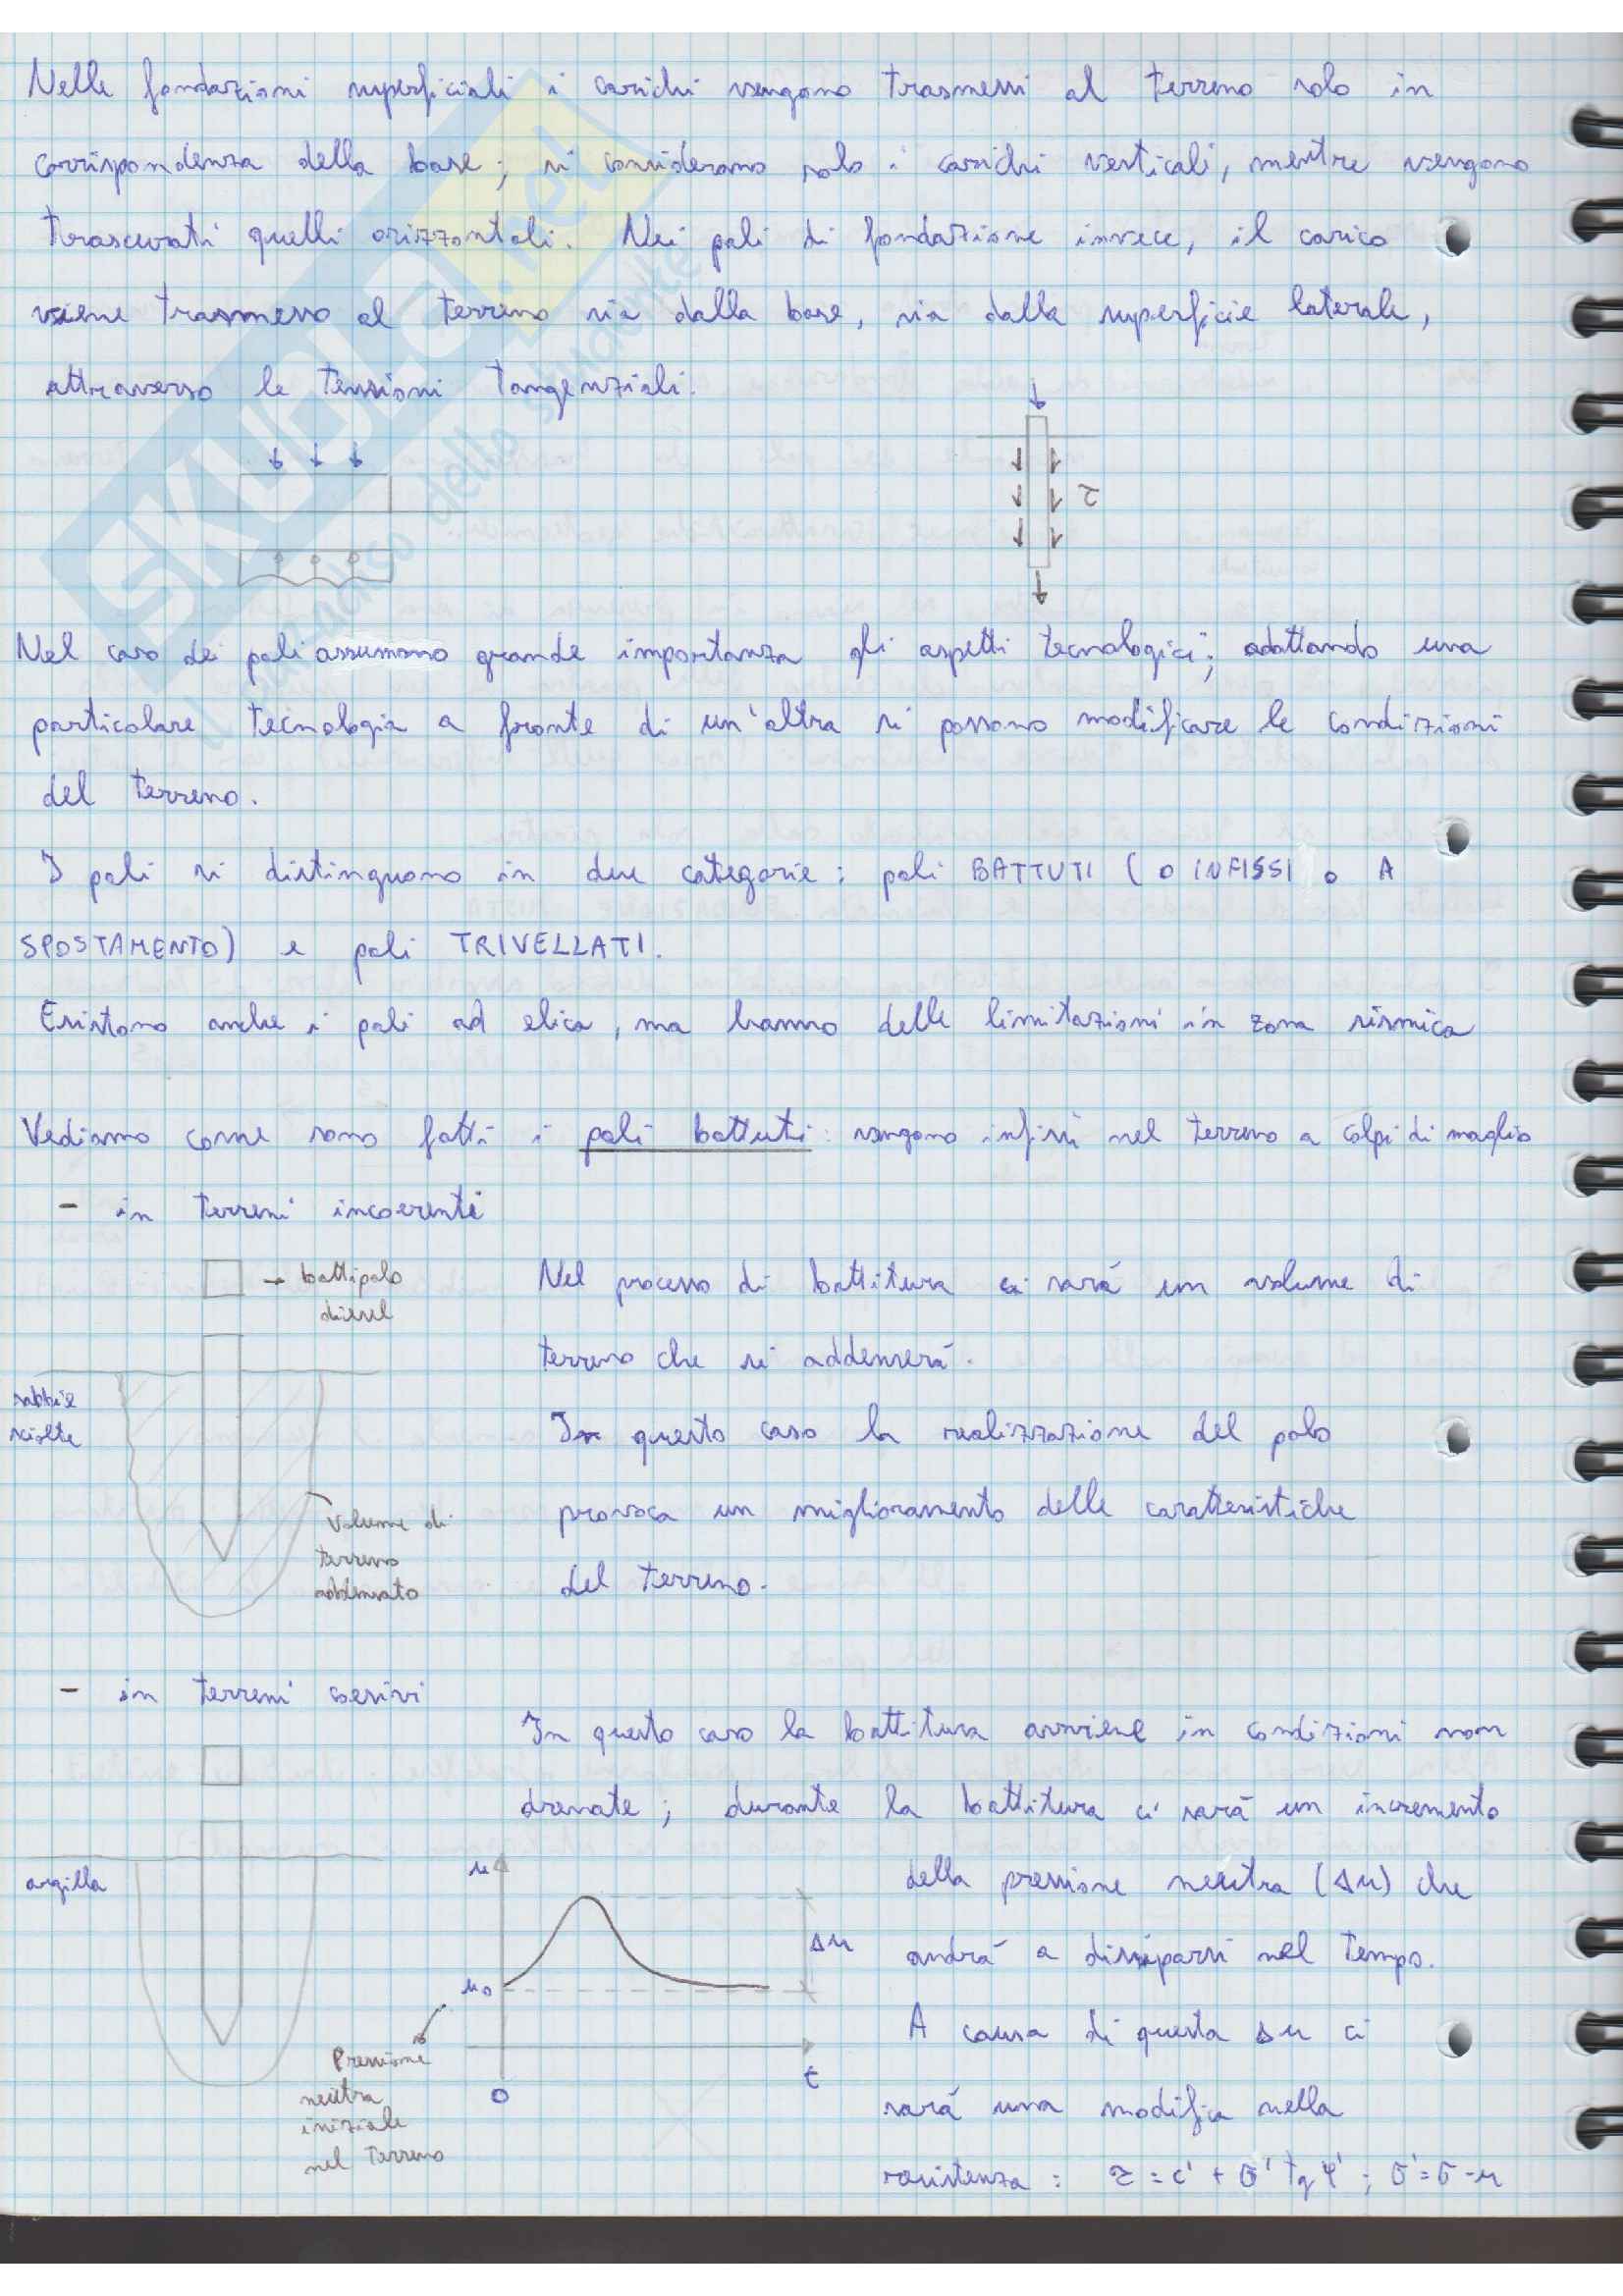 Nelle fondazioni superficiali i carichi vengono trasmessi al terreno solo in
corrispondenza della base; si considerano solo i carichi verticali, mentre vengono
trascurati quelli orizzontali. Nei pali di fondazione invece, il carico
viene trasmesso al terreno sia dalla base, sia dalla superficie laterale,
attraverso le tensioni tangenziali.
τ
Nel caso dei pali assumono grande importanza gli aspetti tecnologici; adottando una
particolare tecnologia a fronte di un'altra si possono modificare le condizioni
del terreno.
I pali si distinguono in due categorie: pali BATTUTI (o INFISSI o A
SPOSTAMENTO) e pali TRIVELLATI.
Esistono anche i pali ad elica, ma hanno delle limitazioni in zona sismica
Vediamo come sono fatti i pali battuti: vengono infissi nel terreno a colpi di maglio
- in terreni incoerenti
→ battipalo
diesel
Nel processo di battitura ci sarà un volume di
terreno che si addenserà.
sabbie
sciolte
In questo caso la realizzazione del palo
provoca un miglioramento delle caratteristiche
del terreno.
Volume di
terreno
addensato
- in terreni coesivi
In questo caso la battitura avviene in condizioni non
drenate; durante la battitura ci sarà un incremento
argilla
u
della pressione neutra (Δu) che
Δu
andrà a dissiparsi nel tempo.
u₀
A causa di questa Δu ci
Pressione
neutra
iniziale
nel terreno
0
t
sarà una modifica nella
resistenza: τ = c' + σ' tg φ' ; σ' = σ - u
SKUOLA.net
il paradiso dello studente